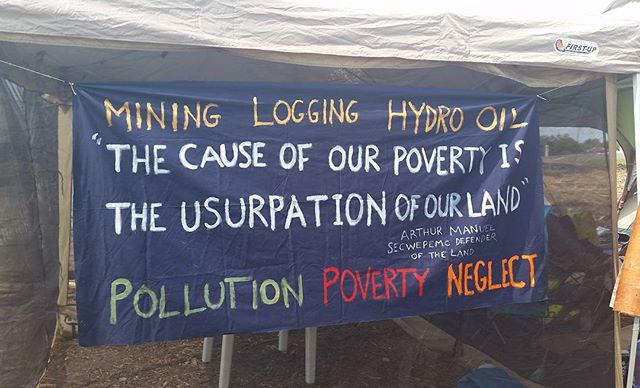 FIRST-UP
MINING LOGGING HYDRO OIL
"THE CAUSE OF OUR POVERTY IS
THE USURPATION OF OUR LAND"
ARTHUR MANUEL
SECWEPEMC DEFENDER
OF THE LAND
POLLUTION POVERTY NEGLECT